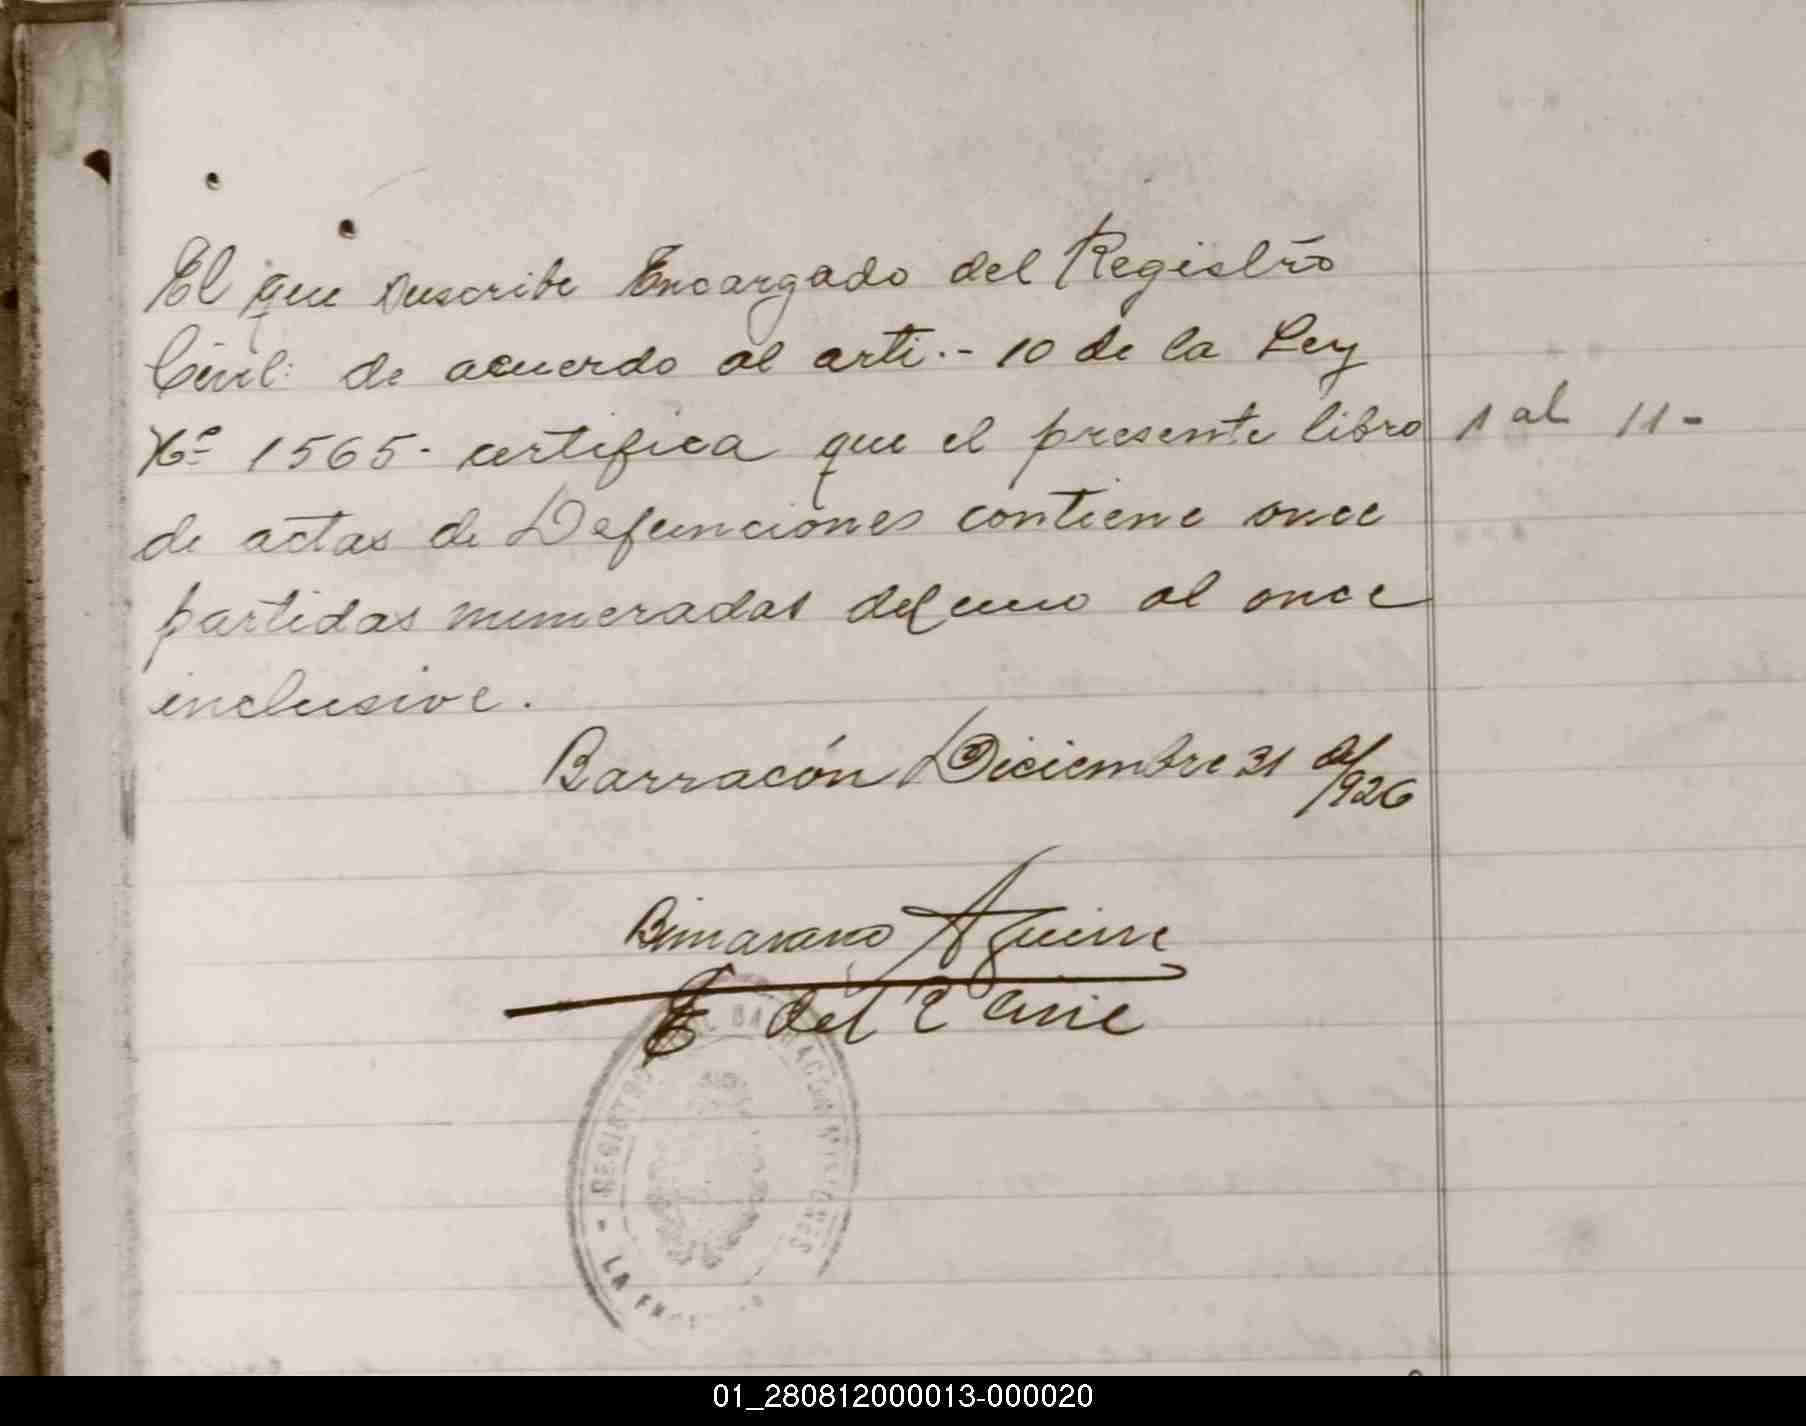 El que suscribe Encargado del Registro
Civil: de acuerdo al arti.- 10 de la Ley
Nº 1565- certifica que el presente libro 1 al 11-
de actas de Defunciones contiene once
partidas numeradas del uno al once
inclusive.
Barracón Diciembre 31 de/926
Aguirre
E del R Civil
REGISTRO BARRACON MISIONES
LA
01_280812000013-000020